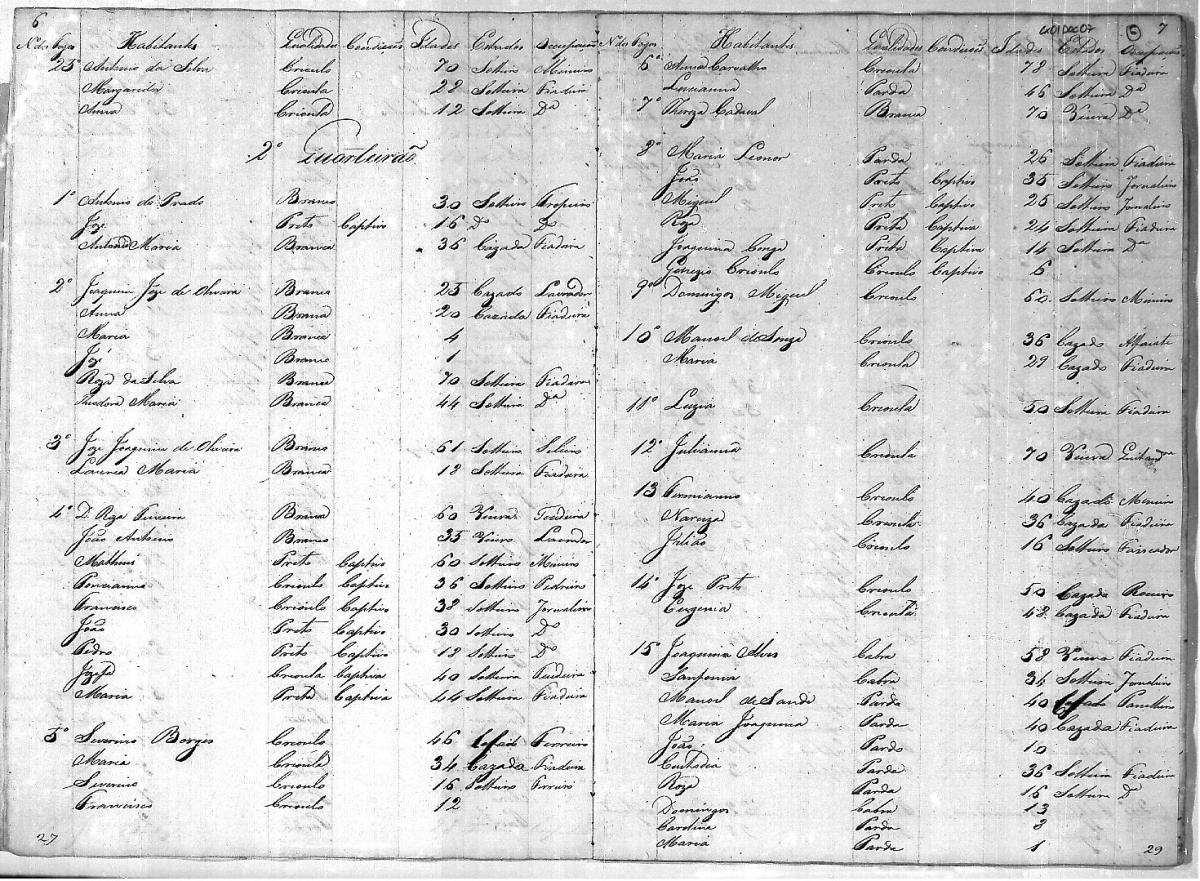 6
N. dos fogos Habitantes Qualidades Condicoens Idades Estados Occupaçoens
25º Antonio da Silva Crioulo 70 Solteiro Mineiro
Margarida Crioula 22 Solteira Fiadeira
Anna Crioula 12 Solteira Dª
2º Quarteirão
1º Antonio do Prado Branco 30 Solteiro Tropeiro
Joze Preto Captivo 16 Dº Dº
Antonia Maria Branca 36 Cazada Fiadeira
2º Joaquim Joze de Oliveira Branco 25 Cazado Lavrador
Anna Branca 20 Cazada Fiadeira
Maria Branca 4
Joze Branco 1
Roza da Silva Branca 70 Solteira Fiadeira
Theodora Maria Branca 44 Solteira Dª
3º Joze Joaquim de Oliveira Branco 61 Solteiro Seleiro
Laurea Maria Branca 12 Solteira Fiadeira
4º D. Roza Branca 60 Viuva
João Antonio Branco 35 Viuvo Lavrador
Matheus Preto Captivo 60 Solteiro Mineiro
Ponciano Crioulo Captivo 36 Solteiro Pedreiro
Francisco Crioulo Captivo 38 Solteiro Jornaleiro
João Preto Captivo 30 Solteiro Dº
Pedro Preto Captivo 12 Solteiro Dº
Jozefa Crioula Captiva 40 Solteira Fiadeira
Maria Preta Captiva 44 Solteira Fiadeira
5º Severino Borges Crioulo 46 Cazado Ferreiro
Maria Crioula 34 Cazada Fiadeira
Severino Crioulo 16 Solteiro Ferreiro
Francisco Crioulo 12
27
7
N. dos fogos Habitantes Qualidades Condicoens Idades Estados Occupaçoens
6º Anna Carvalho Crioula 78 Solteira Fiadeira
Luciana Parda 46 Solteira Dª
7º Thereza Branca 70 Viuva Dª
8º Maria Leonor Parda 26 Solteira Fiadeira
João Preto Captivo 35 Solteiro Jornaleiro
Miguel Preto Captivo 25 Solteiro Jornaleiro
Roza Preta Captiva 24 Solteira Fiadeira
Joaquina Conga Preta Captiva 14 Solteira Dª
Crioulo Crioulo Captivo 6
9º Domingos Miguel Crioulo 60 Solteiro Mineiro
10º Manoel de Souza Crioulo 36 Cazado Alfaiate
Maria Crioula 29 Cazada Fiadeira
11º Luzia Crioula 50 Solteira Fiadeira
12º Julianna Crioula 70 Viuva
13 Firmianno Crioulo 40 Cazado Mineiro
Narciza Crioula 36 Cazada Fiadeira
Julião Crioulo 16 Solteiro Faiscador
14º Joze Preto Crioulo 50 Cazado Roceiro
Eugenia Crioula 48 Cazada Fiadeira
15º Joaquina Alves Cabra 58 Viuva Fiadeira
Cabra 34 Solteira
Manoel de Parda 40 Cazado
Maria Joaquina Parda 40 Cazada Fiadeira
João Pardo 10
Custodia Parda 36 Solteira Fiadeira
Roza Parda 16 Solteira Dª
Domingos Cabra 13
Carolina Parda 3
Maria Parda 1
29